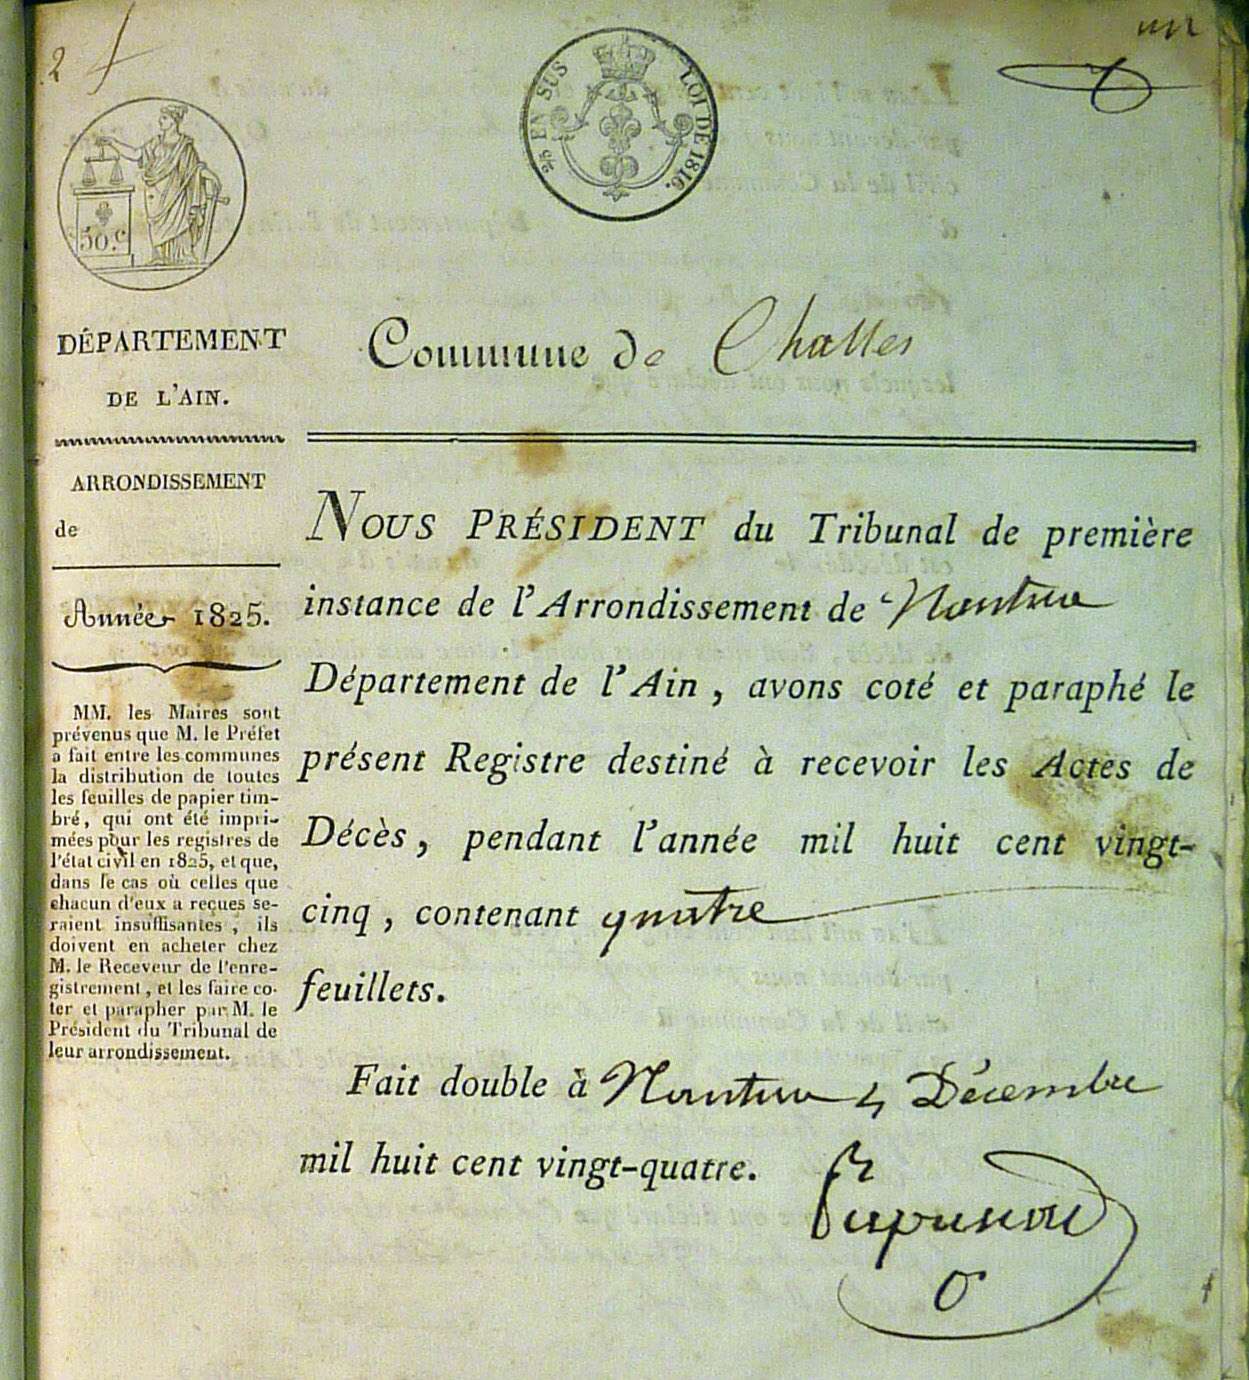 2
un
25 EN SUS LOI DE 1816.
50.c
DÉPARTEMENT
DE L'AIN.
ARRONDISSEMENT
de
Année 1825.
MM. les Maires sont
prévenus que M. le Préfet
a fait entre les communes
la distribution de toutes
les feuilles de papier tim-
bré, qui ont été impri-
mées pour les registres de
l'état civil en 1825, et que,
dans le cas où celles que
chacun d'eux a reçues se-
raient insuffisantes, ils
doivent en acheter chez
M. le Receveur de l'enre-
gistrement, et les faire co-
ter et parapher par M. le
Président du Tribunal de
leur arrondissement.
Commune de Challes
NOUS PRÉSIDENT du Tribunal de première
instance de l'Arrondissement de Nantua
Département de l'Ain, avons coté et paraphé le
présent Registre destiné à recevoir les Actes de
Décès, pendant l'année mil huit cent vingt-
cinq, contenant quatre
feuillets.
Fait double à Nantua 4 Décembre
mil huit cent vingt-quatre.